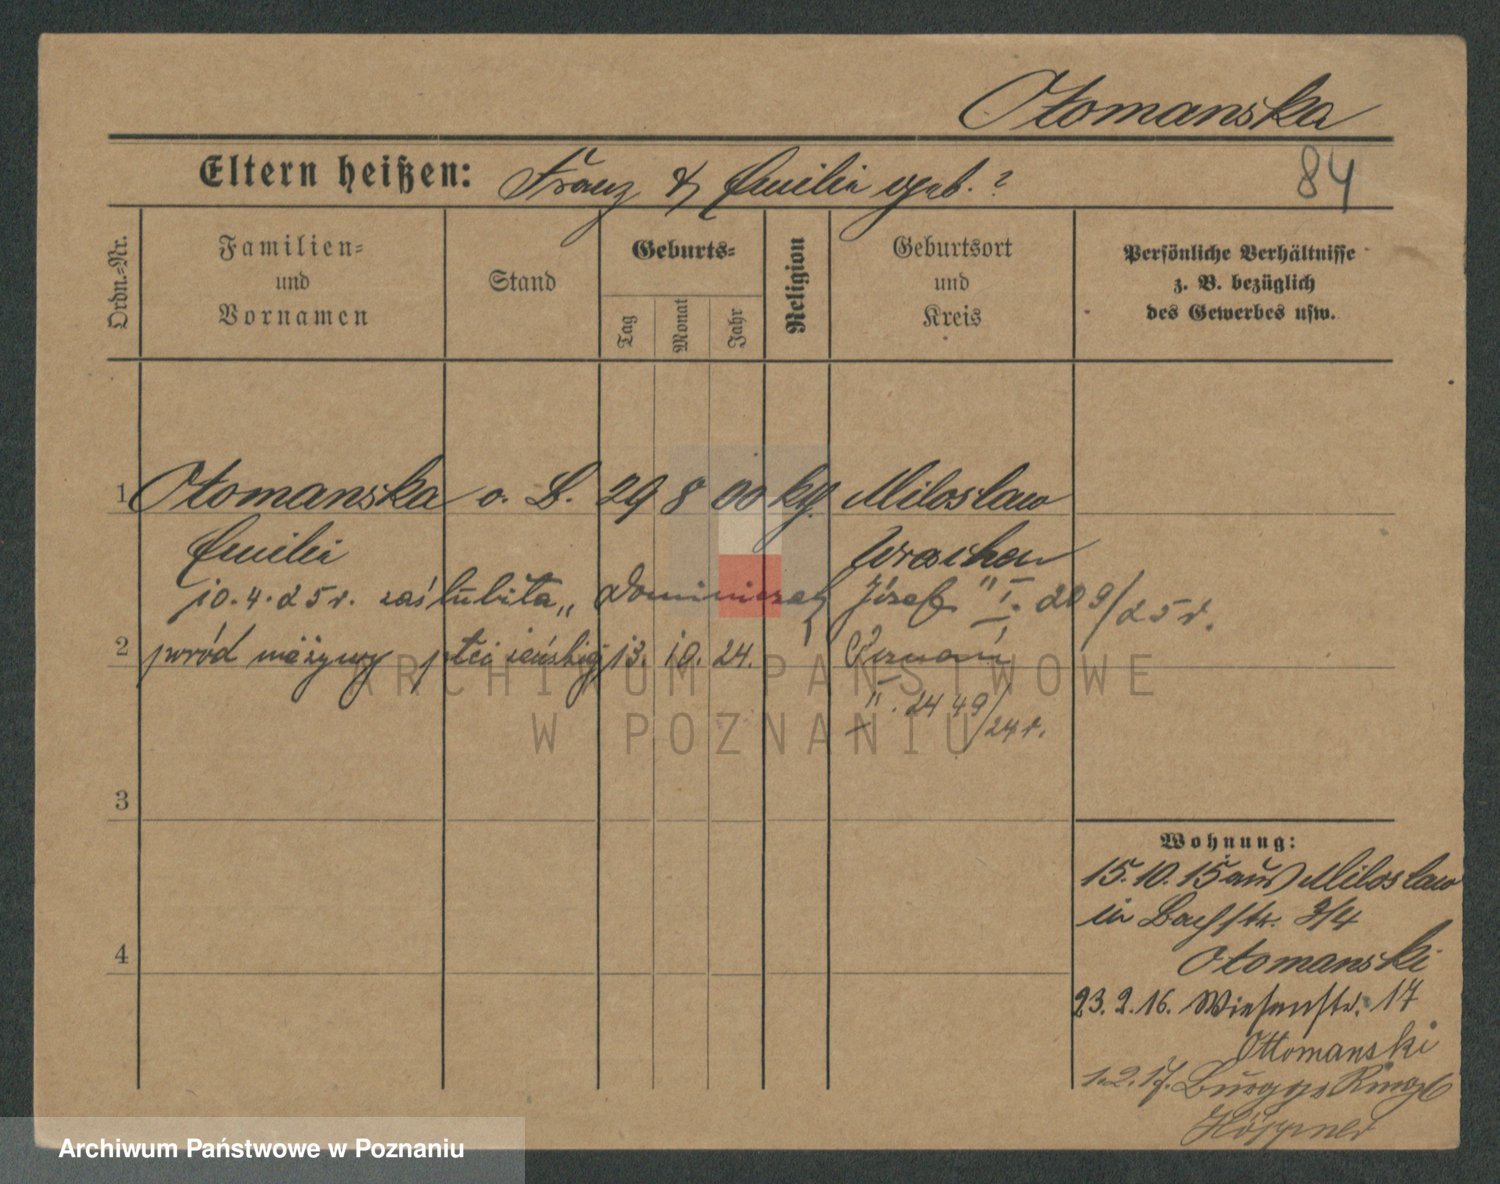 Otomanska
Eltern heißen: Franz & Emilie geb. ?
84
Ordn.-Nr.
Familien-
und
Vornamen
Stand
Geburts-
Tag
Monat
Jahr
Religion
Geburtsort
und
Kreis
Persönliche Verhältnisse
z. B. bezüglich
des Gewerbes usw.
1 Otomanska o. B. 29 8 00 kth. Miloslaw
Emilie Wreschen
10.4.25 r. zaślubiła „Dominiczak Józef" I. 209/25 r.
2 poród nieżywy płci żeńskiej 13. 10. 24. Poznań
2449/24 r.
3
4
Wohnung:
15.10.15 aus Miloslaw
in Bachstr. 3/4
Otomanski
23.2.16. Wiesenstr. 17
Ottomanski
1.2.17.
Höppner
ARCHIWUM PAŃSTWOWE
W POZNANIU
Archiwum Państwowe w Poznaniu